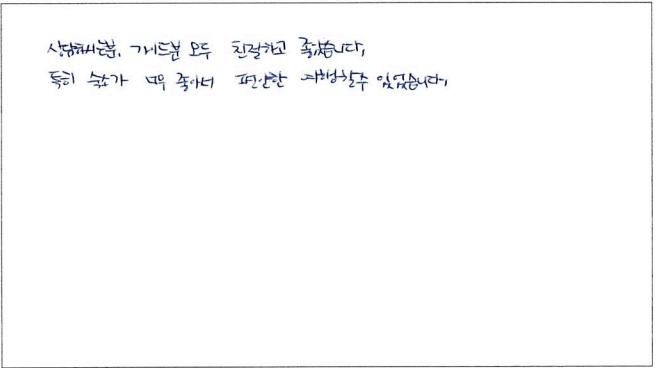 상담하시는분, 가이드분 모두 친절하고 좋았습니다,
특히 숙소가 너무 좋아서 편안한 여행할수 있었습니다,